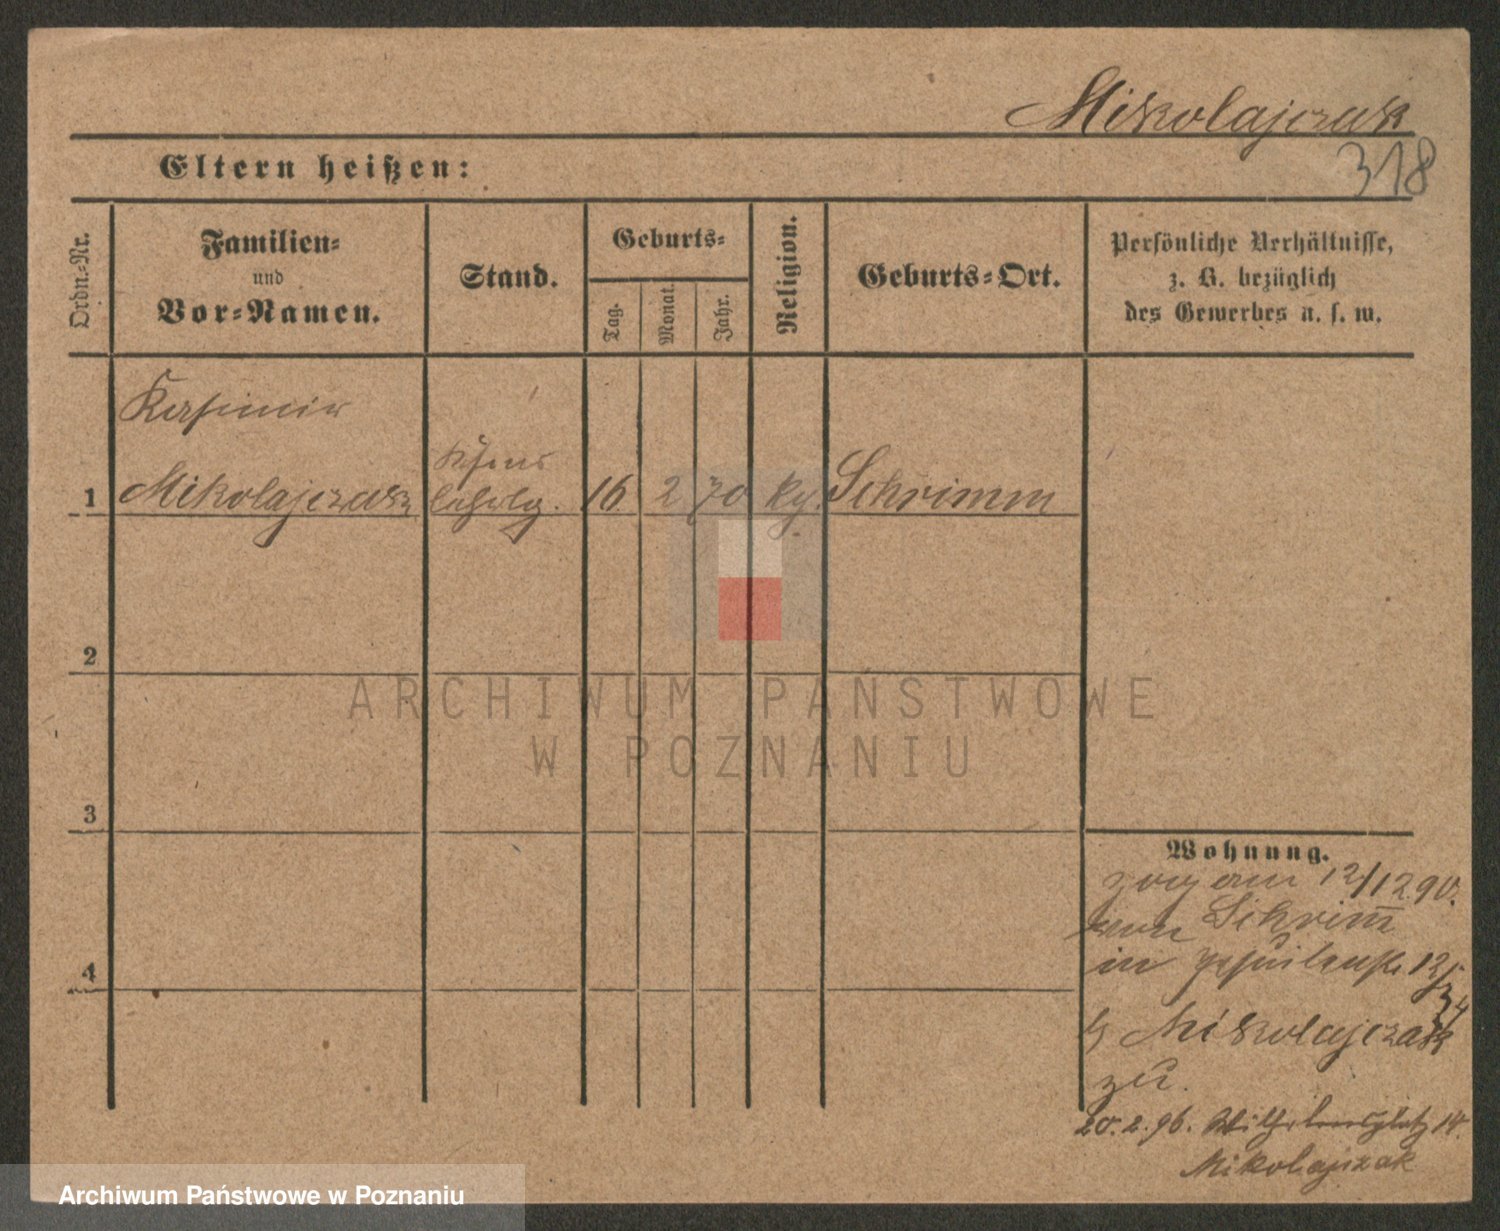 Mikolajczak
318
Eltern heißen:
Ordn.-Nr.
Familien-
und
Vor-Namen.
Stand.
Geburts-
Tag.
Monat.
Jahr.
Religion.
Geburts-Ort.
Persönliche Verhältnisse,
z. B. bezüglich
des Gewerbes u. s. w.
Kasimir
1 Mikolajczak lehrlg. 16 2 70 kg. Schrimm
2
3
4
Wohnung.
zog am 12/12 90.
von Schrim̅
in Jesuitenstr. 12
b Mikolajczak
zu.
20.2.96. Wilhelmsplatz 14.
Mikolajczak
ARCHIWUM PAŃSTWOWE
W POZNANIU
Archiwum Państwowe w Poznaniu